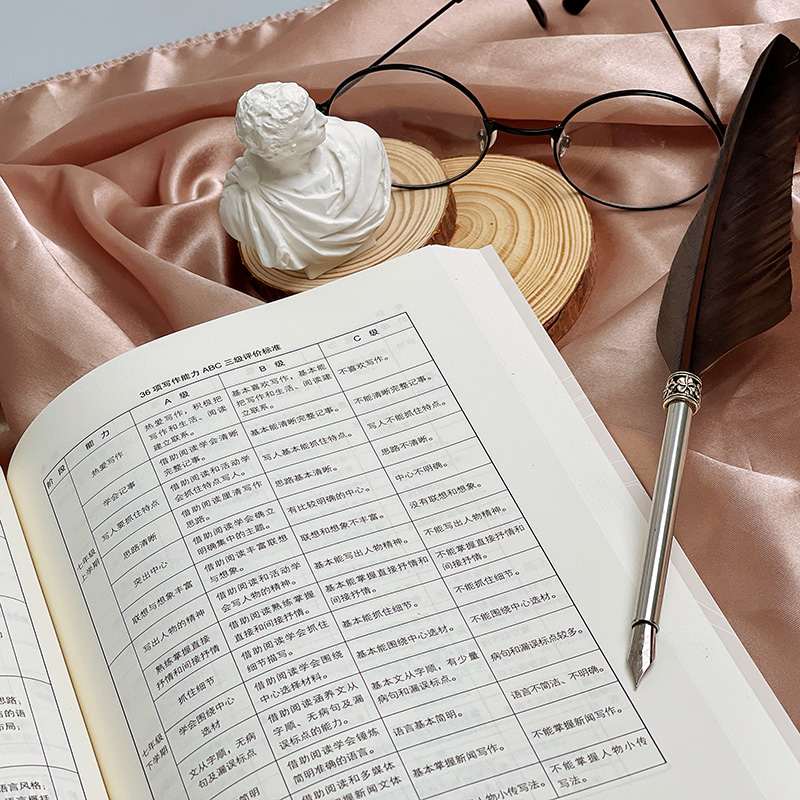 36 项写作能力 ABC 三级评价标准
阶 段 能 力 A 级 B 级 C 级
七年级
上学期
热爱写作 热爱写作,积极把 基本喜欢写作,基本能 不喜欢写作。
写作和生活、阅读 把写作和生活、阅读建
建立联系。 立联系。
学会记事 借助阅读学会清晰 基本能清晰完整记事。 不能清晰完整记事。
完整记事。
写人要抓住特点 借助阅读和活动学 写人基本能抓住特点。 写人不能抓住特点。
会抓住特点写人。
思路清晰 借助阅读厘清写作 思路基本清晰。 思路不清晰。
思路。
突出中心 借助阅读学会确立 有比较明确的中心。 中心不明确。
明确集中的主题。
联想与想象丰富 借助阅读丰富联想 联想和想象不丰富。 没有联想和想象。
与想象。
七年级
下学期
写出人物的精神 借助阅读和活动学 基本能写出人物精神。 不能写出人物精神。
会写人物的精神。
熟练掌握直接 借助阅读熟练掌握 基本能掌握直接抒情和 不能掌握直接抒情和
抒情和间接抒情 直接和间接抒情。 间接抒情。 间接抒情。
抓住细节 借助阅读学会抓住 基本能抓住细节。 不能抓住细节。
细节描写。
学会围绕中心 借助阅读学会围绕 基本能围绕中心选材。 不能围绕中心选材。
选材 中心选择材料。
文从字顺,无病 借助阅读涵养文从 基本文从字顺,有少量 病句和漏误标点较多。
句及漏误标点 字顺、无病句及漏 病句和漏误标点。
误标点的能力。
借助阅读学会锤炼 语言基本简明。 语言不简洁、不明确。
简明准确的语言。
借助阅读和多媒体 基本掌握新闻写作。 不能掌握新闻写作。
掌握新闻文体
人物小传写法。 不能掌握人物小传
写法。
思路;
的语
布局;
言风格;